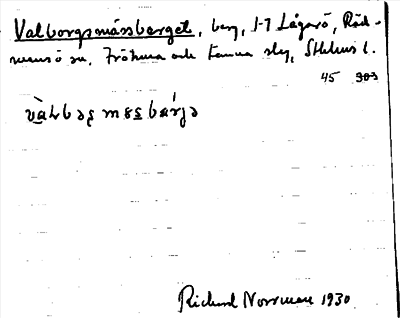 Valborgsmässberget, berg, 1-7 Lågarö, Räd-
mansö sn, Frötuna och Länna slg, Sthlms l.
45 903
vàLbəs mɛs bærjə
Richard Norrman 1930